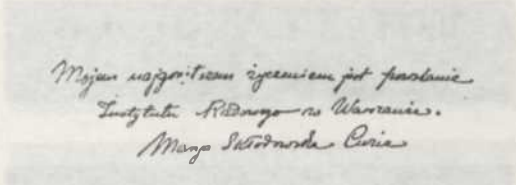 Mojem najgorętszem życzeniem jest powstanie
Instytutu Radowego w Warszawie.
Marya Skłodowska Curie